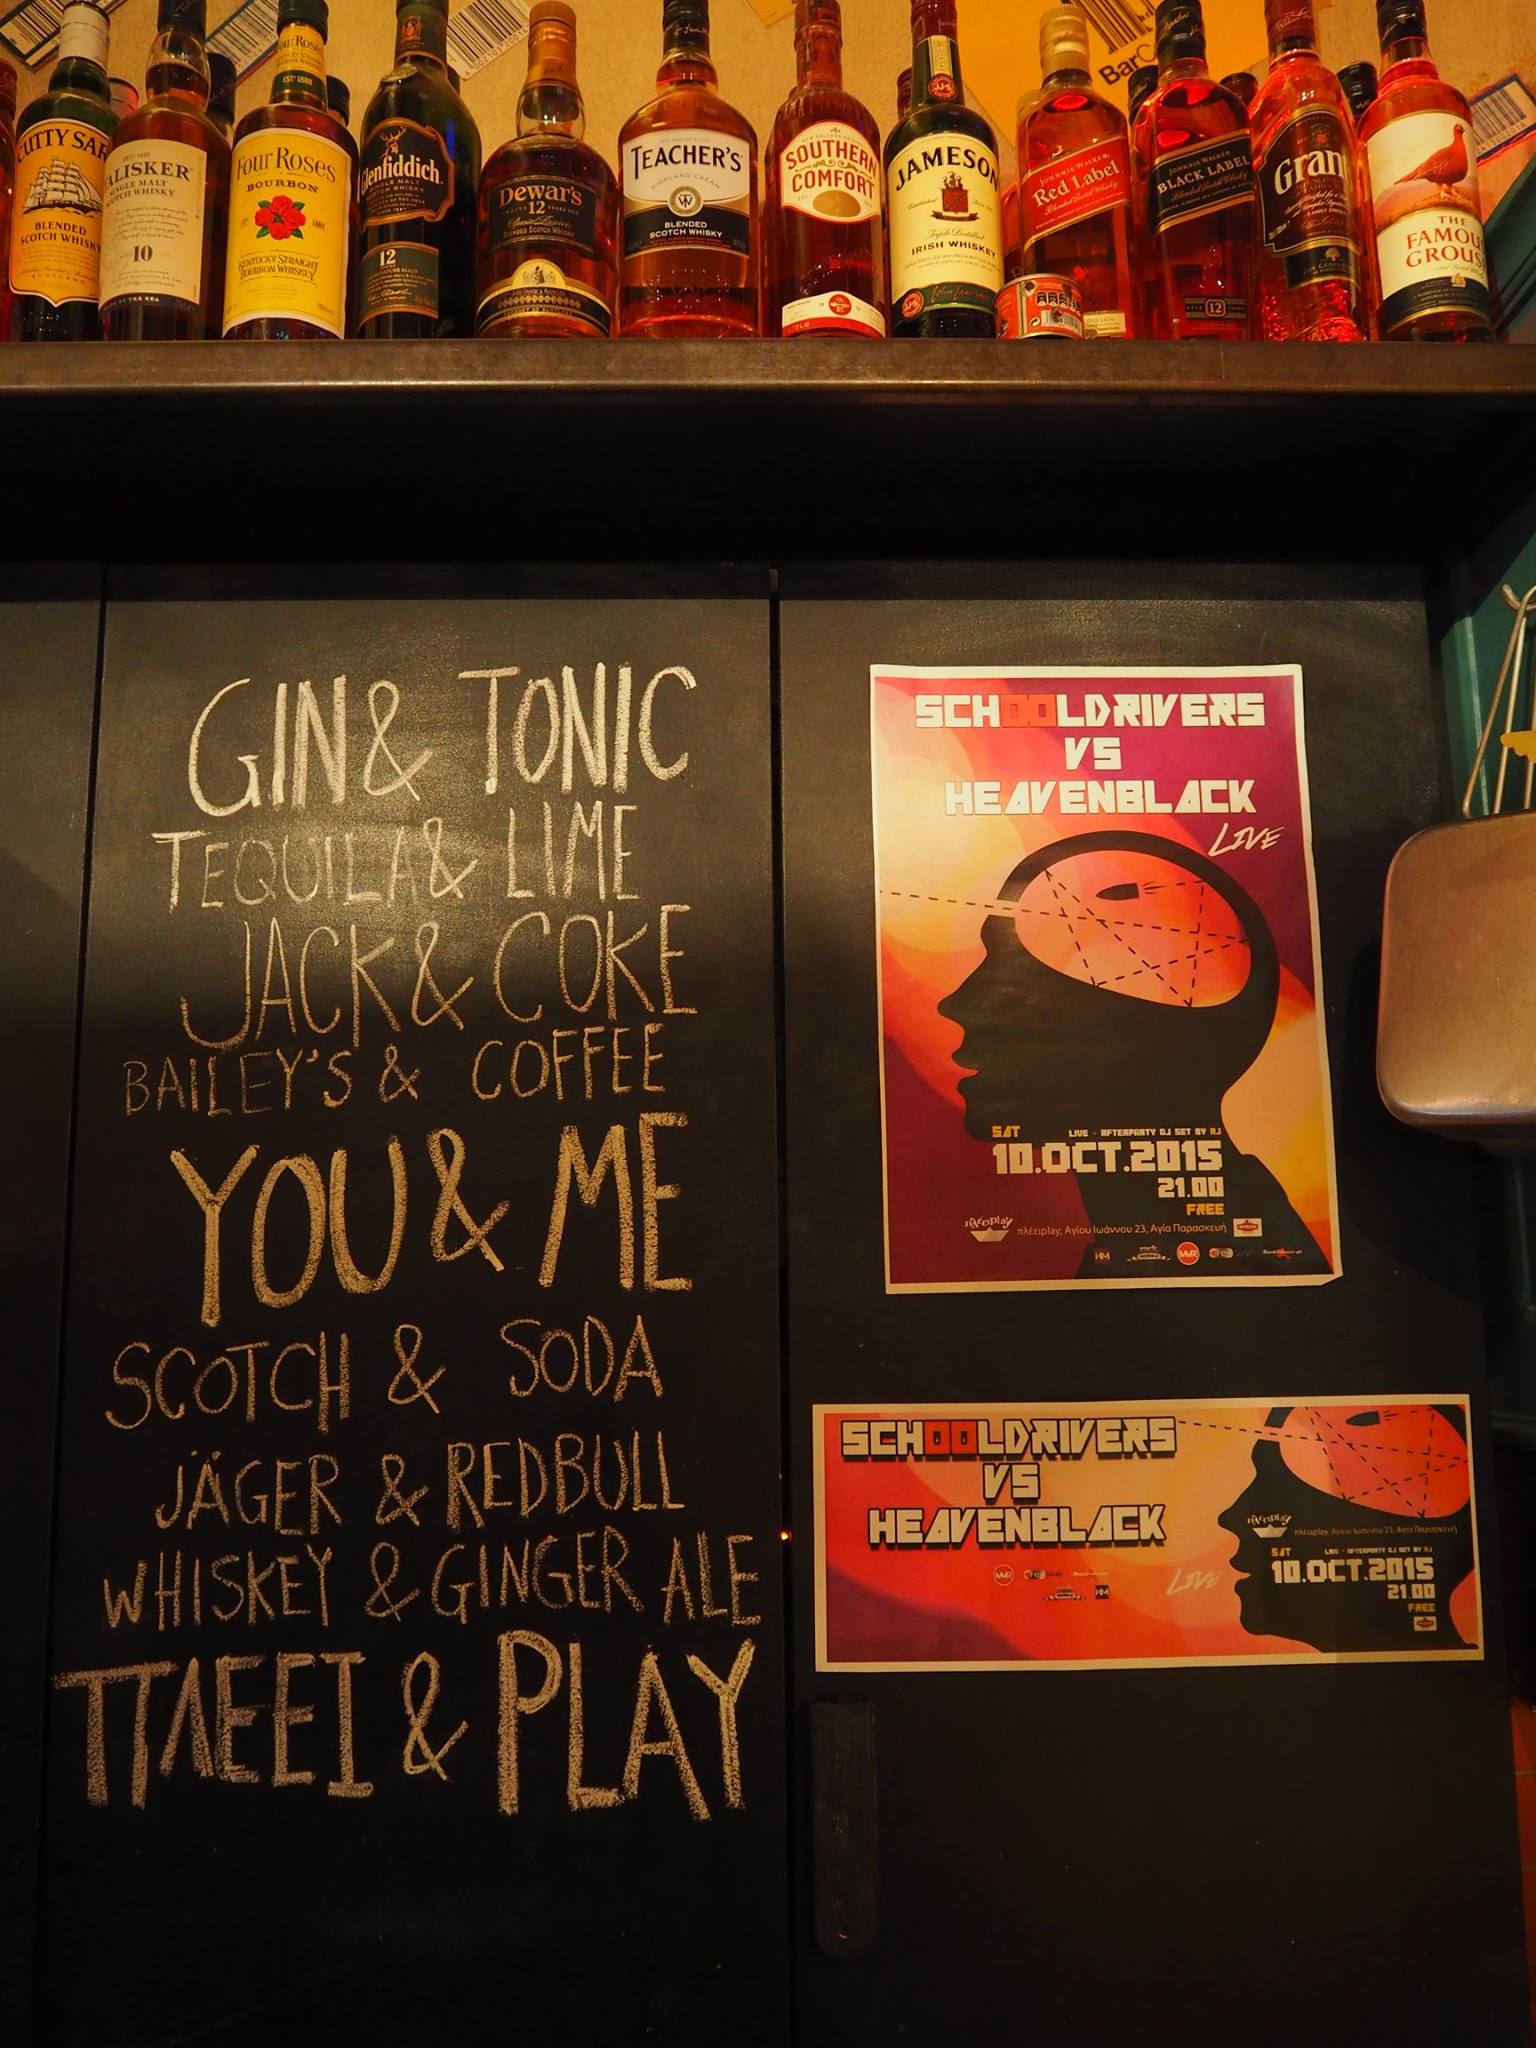 BarC
CUTTY SAR
BLENDED
SCOTCH WHISKY
TALISKER
SINGLE MALT
SCOTCH WHISKY
10
Four Roses
EST? 1888
Four Roses
BOURBON
KENTUCKY STRAIGHT
BOURBON WHISKEY
Glenfiddich
12
Dewar's
12
BLENDED SCOTCH WHISKY
TEACHER'S
HIGHLAND CREAM
BLENDED
SCOTCH WHISKY
SOUTHERN
COMFORT
JAMESON
Triple Distilled
IRISH WHISKEY
JOHNNIE WALKER
Red Label
JOHNNIE WALKER
BLACK LABEL
12
Grant
THE
FAMOUS
GROUSE
GIN & TONIC
TEQUILA & LIME
JACK & COKE
BAILEY'S & COFFEE
YOU & ME
SCOTCH & SODA
JÄGER & REDBULL
WHISKEY & GINGER ALE
ΠΛΕΕΙ & PLAY
SCHOOLDRIVERS
VS
HEAVENBLACK
LIVE
SAT LIVE + AFTERPARTY DJ SET BY RJ
10.OCT.2015
21.00
FREE
πλέειplay πλέειplay, Αγίου Ιωάννου 23, Αγία Παρασκευή
MMR
SCHOOLDRIVERS
VS
HEAVENBLACK
LIVE
MMR
πλέειplay πλέειplay, Αγίου Ιωάννου 23, Αγία Παρασκευή
SAT LIVE + AFTERPARTY DJ SET BY RJ
10.OCT.2015
21.00
FREE